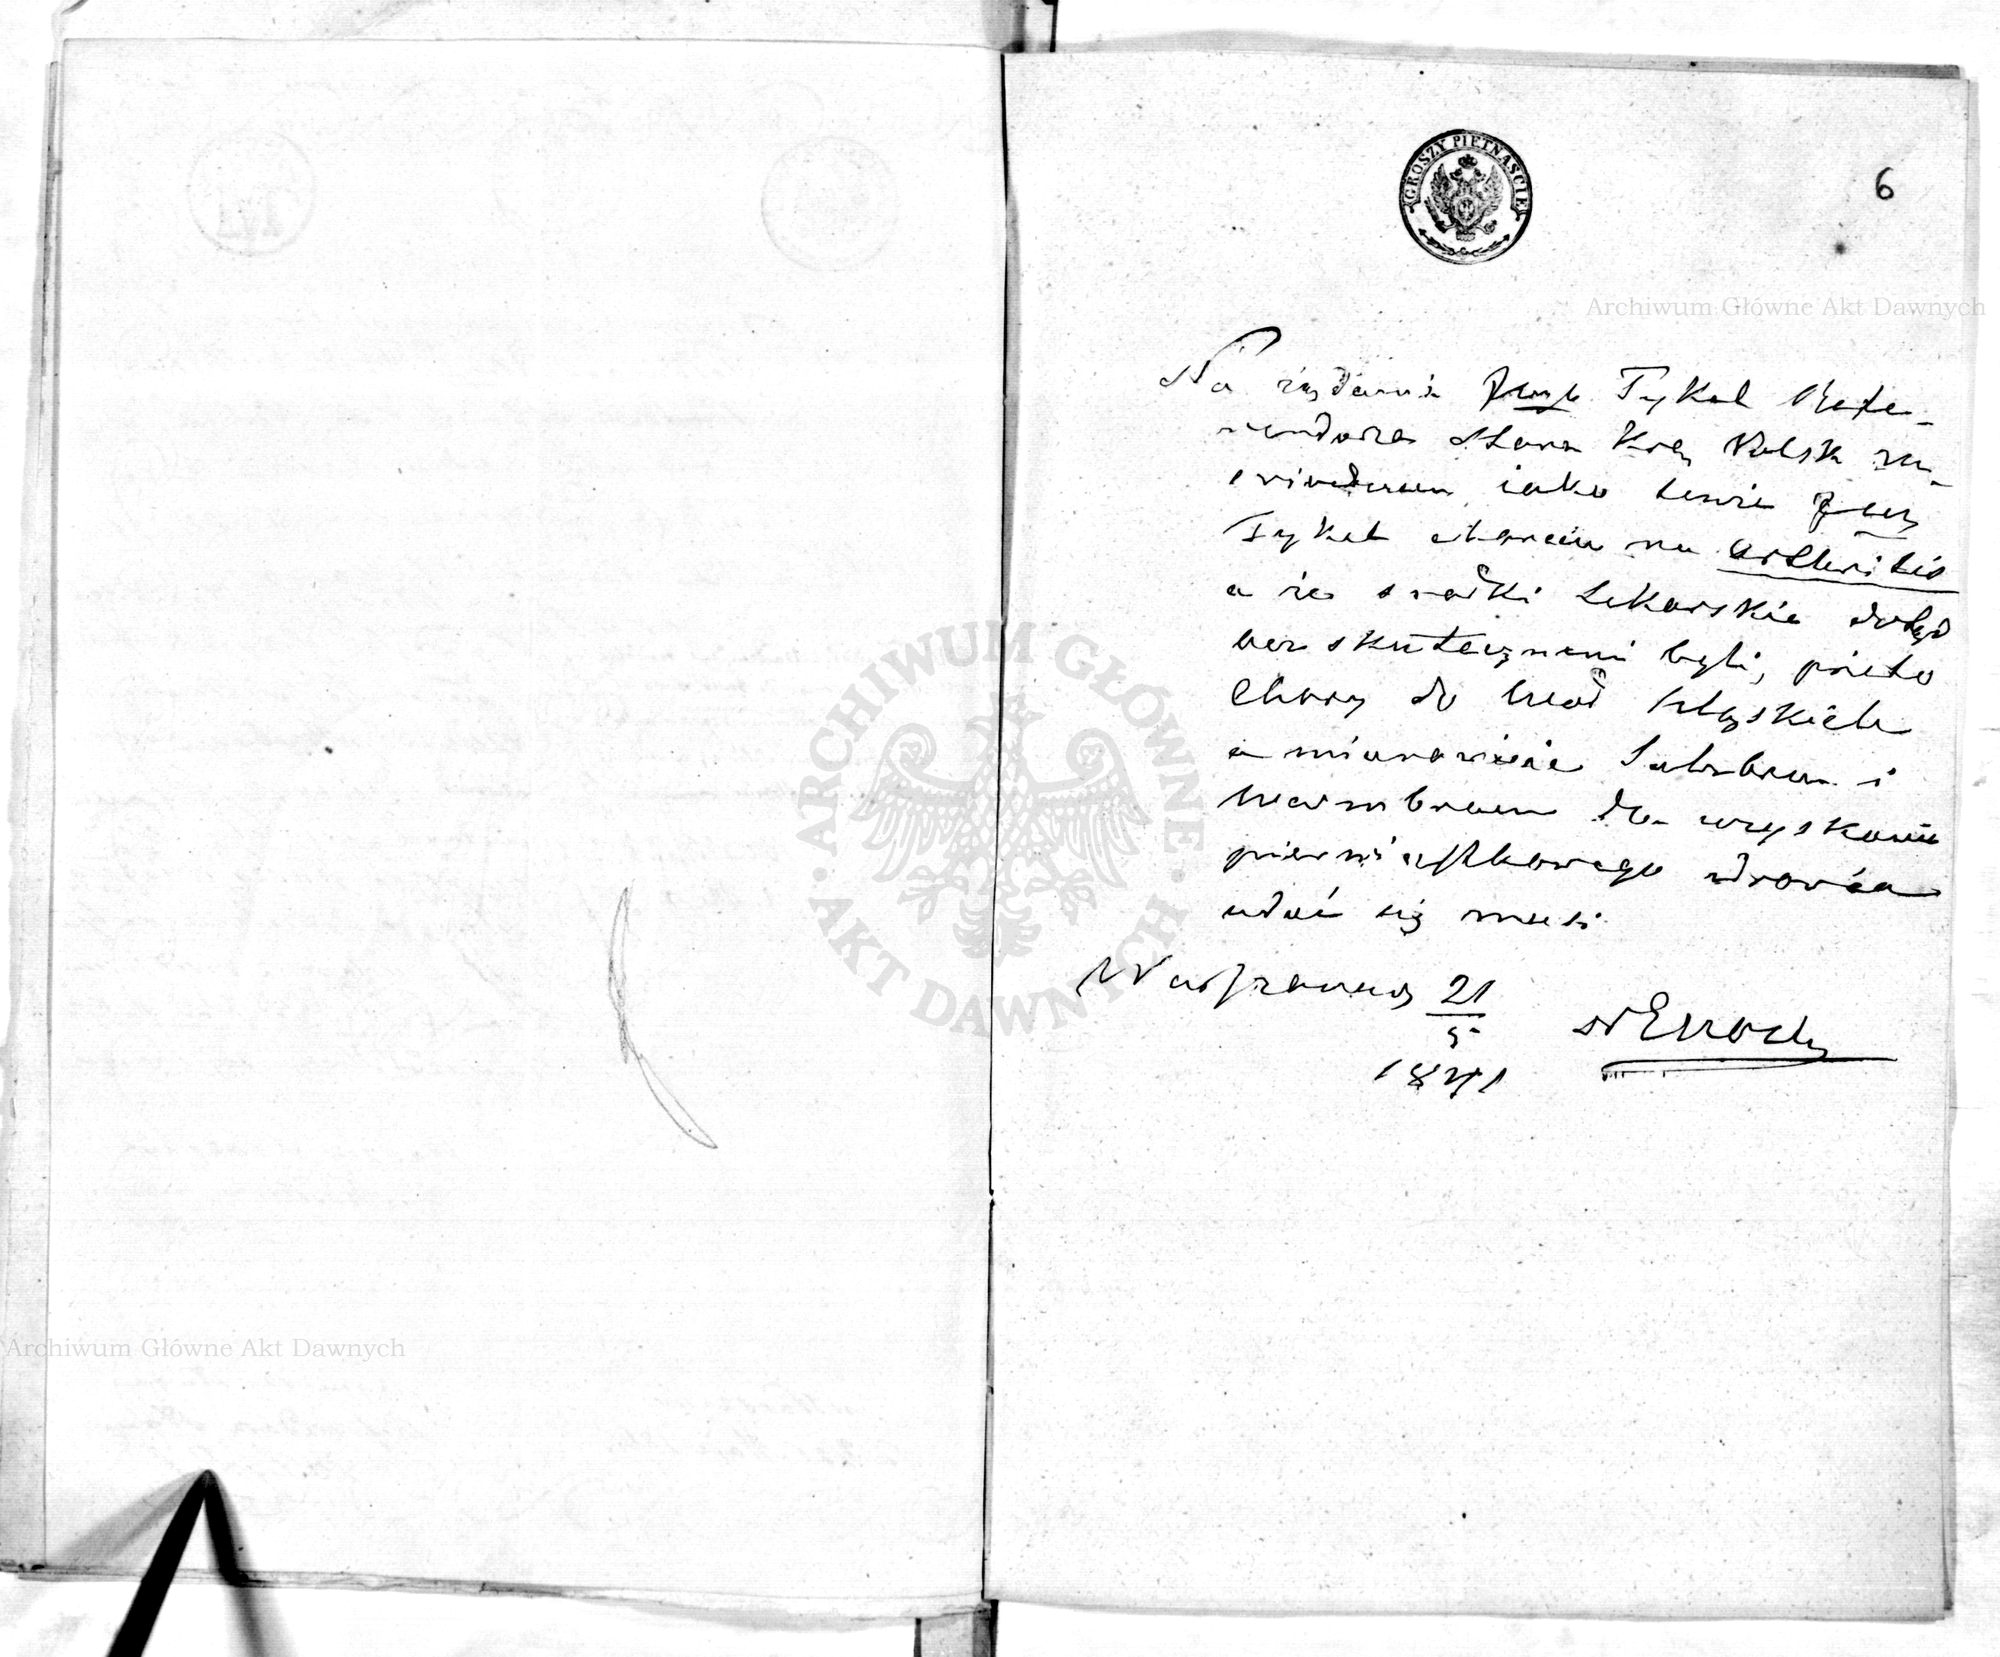 GROSZY PIĘTNAŚCIE
6
Archiwum Główne Akt Dawnych
Na żądanie Tykel Refe-
rendarza Stanu Kró Polsk za-
świadczam iako tenże
Tykel choruie na arthritis
a że środki Lekarskie dotąd
bezskutecznemi byli, przeto
Chory do Wód Szląskich
a mianowicie Salzbrun i
Warmbrunn dla uzyskania
pierwiastkowego zdrowia
udać się musi.
Warszawa 21
5
1841
ARCHIWUM GŁÓWNE AKT DAWNYCH
Archiwum Główne Akt Dawnych